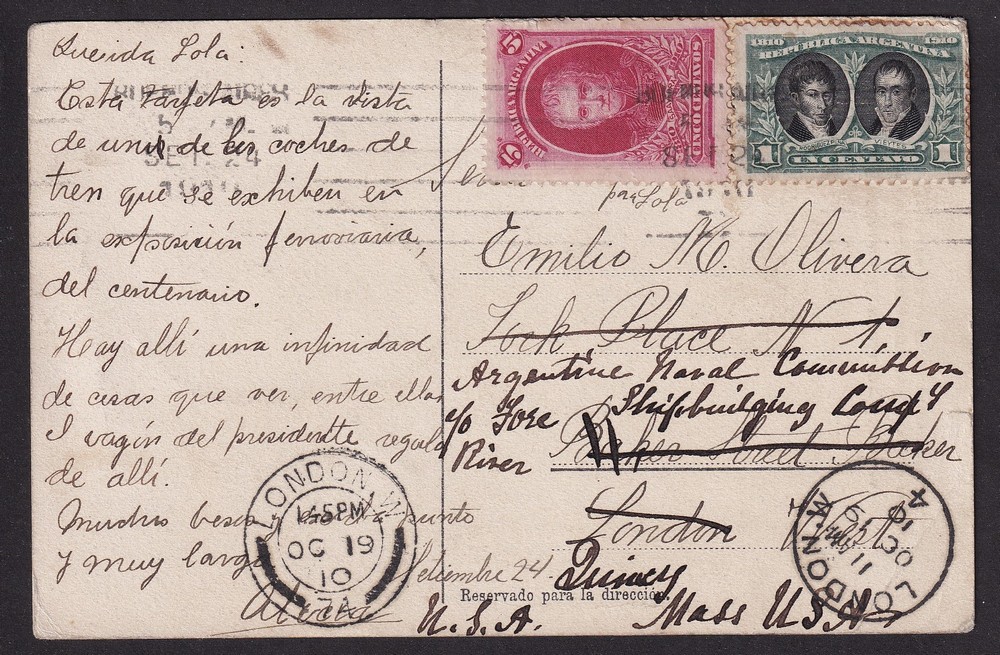 Querida Lola:
Esta tarjeta es la vista
de uno de los coches de
tren que se exhiben en
la exposición ferroviaria,
del centenario.
Hay allí una infinidad
de cosas que ver, entre ellas
vagón del presidente regalo
de allí.
Muchos besos
y muy largo
Setiembre 24
BUENOS AIRES
SET. 24
1910
REPUBLICA ARGENTINA
5
5
CINCO CENTAVOS
1810 1910
REPÚBLICA ARGENTINA
RODRIGUEZ PEÑA VIEYTES
1 UN CENTAVO 1
para Lola
Emilio M. Olivera
York Place N. 1,
Argentine Naval Commission
c/o Fore Shipbuilding Comp'y
River
Street Baker
London
Quincy
Mass USA
U.S.A.
Reservado para la dirección.
LONDON.W
1.45PM
OC 19
10
74
LONDON.W
4
OC 19
10
11